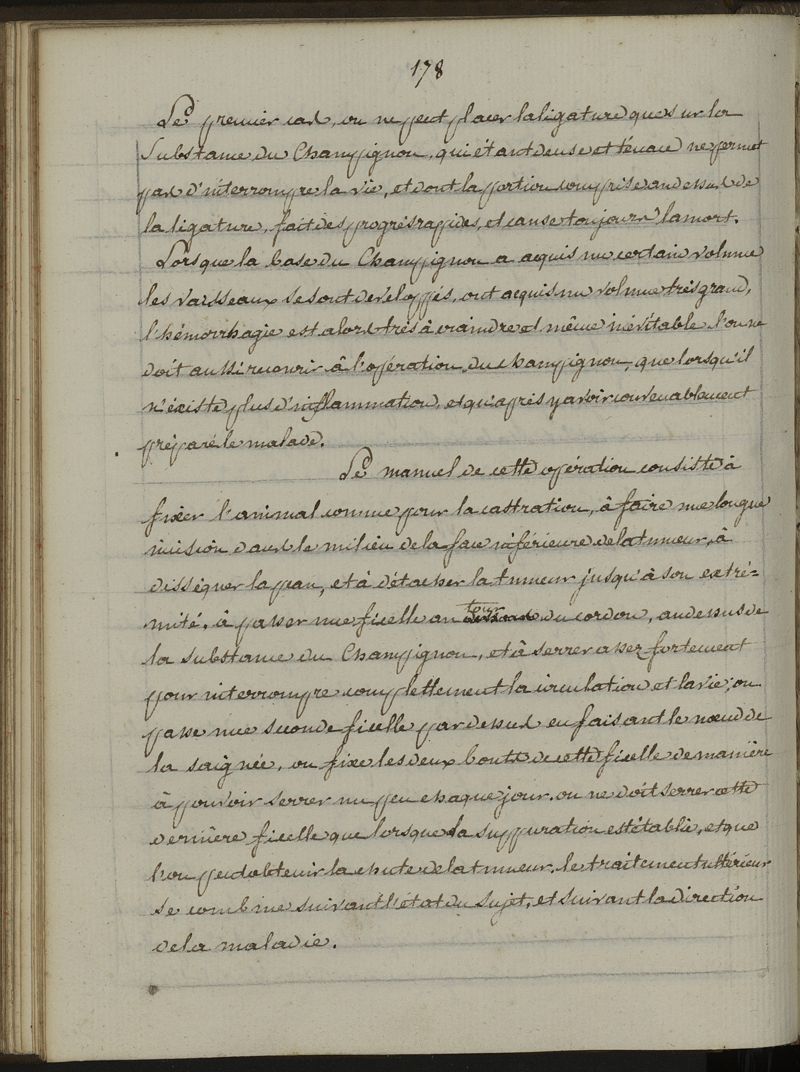 178
Le premier cas, on ne peut placer la ligature que sur la
Substance du Champignon, qui étant dense et ténace ne permet
pas d'interrompre la vie, et dont la portion comprise au dessus de
la ligature, fait des progrés rapides, et cause toujours la mort.
Lorsque la base du Champignon a acquis un certain volume
les vaisseaux se sont devéloppés, ont acquis un volume trés grand,
l'hémorrhagie est alors trés à craindre et même inévitable. l'on ne
doit aussi recourir à l'opération du champignon, que lorsqu'il
n'éxiste plus d'inflammation, et qu'après y avoir convenablement
préparé le malade.
Le manuel de cette opération consiste à
fixer l'animal comme pour la castration, à faire une longue
incision dans le milieu de la face inférieure de la tumeur, à
disséquer la peau, et à détacher la tumeur jusqu'à son extré=
mité. à passer une ficelle au tour du cordon, au dessus de
la substance du Champignon, et à serrer assez fortement
pour interrompre complettement la circulation et la vie; on
passe une seconde ficelle par dessus en faisant le nœud de
la saignée, on fixe les deux bouts de cette ficelle de manière
à pouvoir serrer un peu chaque jour. on ne doit serrer cette
dernière ficelle que lorsque la suppuration est établie, et que
l'on peut obtenir la chute de la tumeur. le traitement ultérieur
se combine suivant l'état du sujet, et suivant la direction
de la maladie.